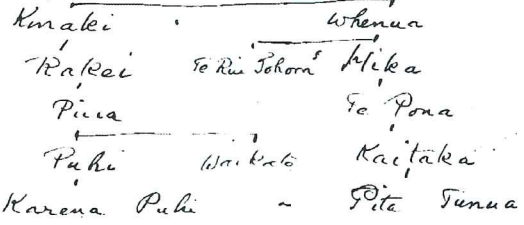 Kmaki whenua
Rakei Te Rui Tohora Mika
Te Pona
Puhi Waikato Kaitaka
Karena Puhi - Pita Tunua